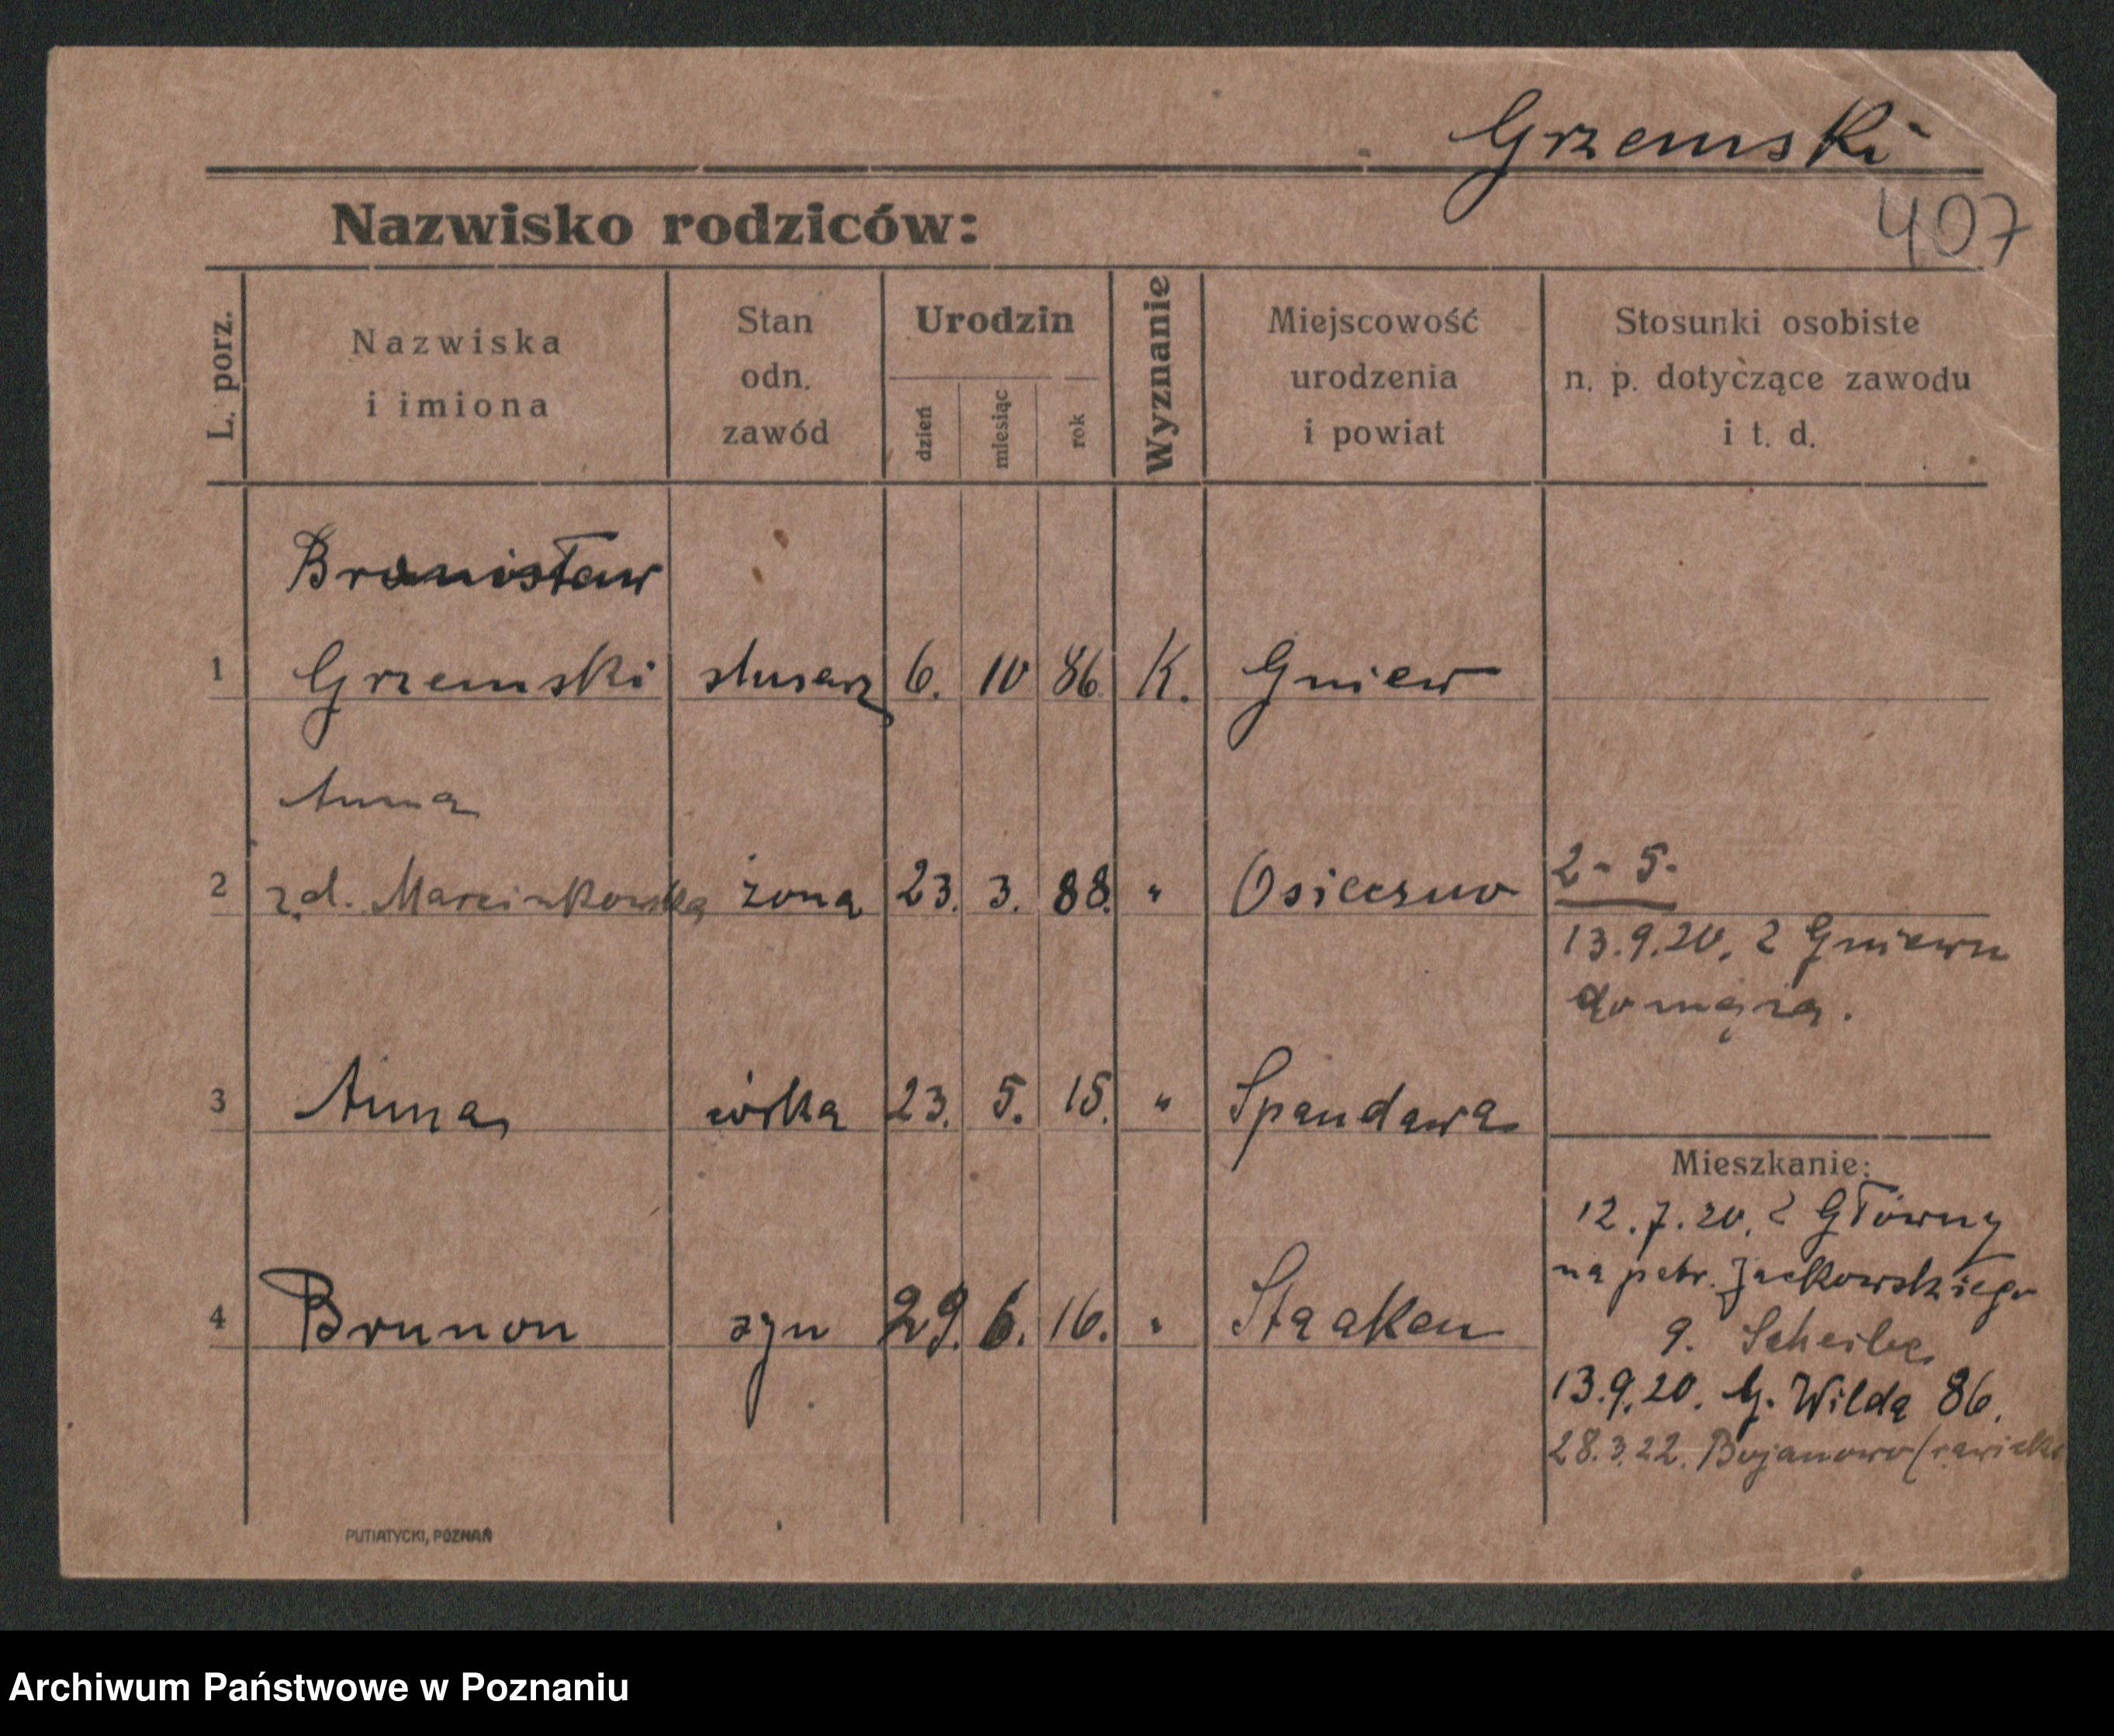 Grzemski
407
Nazwisko rodziców:
L. porz.
Nazwiska
i imiona
Stan
odn.
zawód
Urodzin
dzień
miesiąc
rok
Wyznanie
Miejscowość
urodzenia
i powiat
Stosunki osobiste
n. p. dotyczące zawodu
i t. d.
Bronisław
1 Grzemski ślusarz 6. 10 86 K. Gniew
Anna
2 z d. Marcinkowska żona 23. 3. 88. " Osieczno
2 - 5.
13.9.20. z Gniewu
do męża.
3 Anna córka 23. 5. 15. " Spandawa
Mieszkanie:
12.7.20. z Główny
na Jackowskiego
4 Brunon syn 29. 6. 16. " Staaken
9. Scheibe
13.9.20. G. Wilda 86.
28.3.22. Bojanowo (rawicki
PUTIATYCKI, POZNAŃ
Archiwum Państwowe w Poznaniu